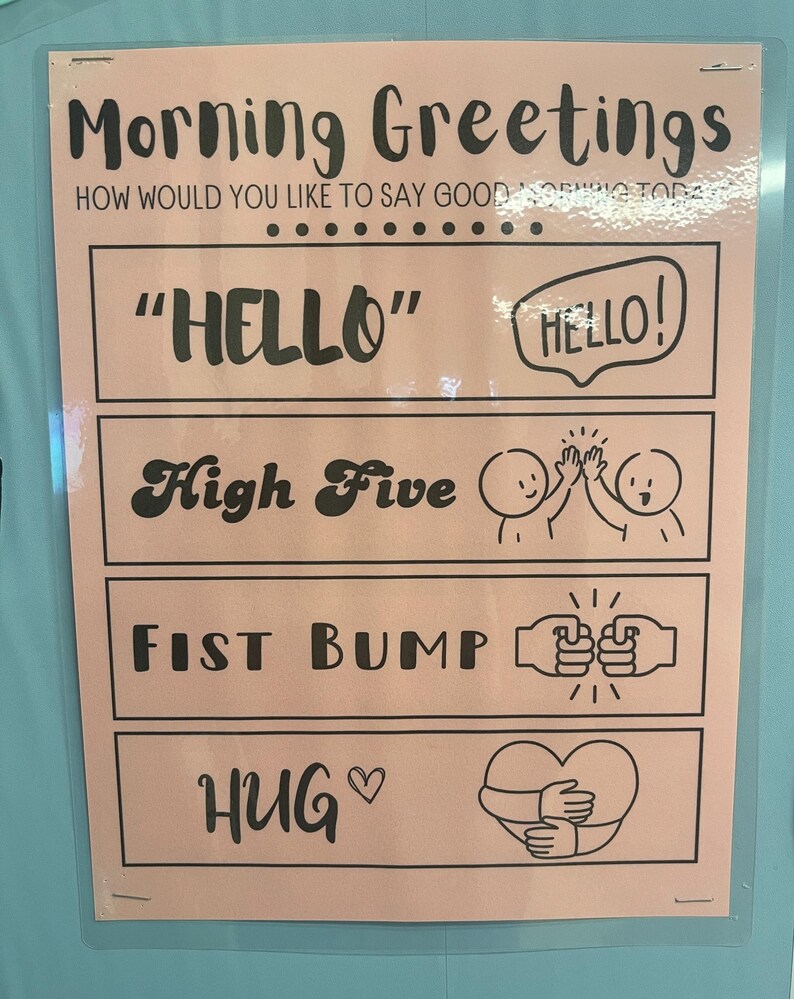 Morning Greetings
HOW WOULD YOU LIKE TO SAY GOOD MORNING TODAY?
"HELLO"
HELLO!
High Five
FIST BUMP
HUG